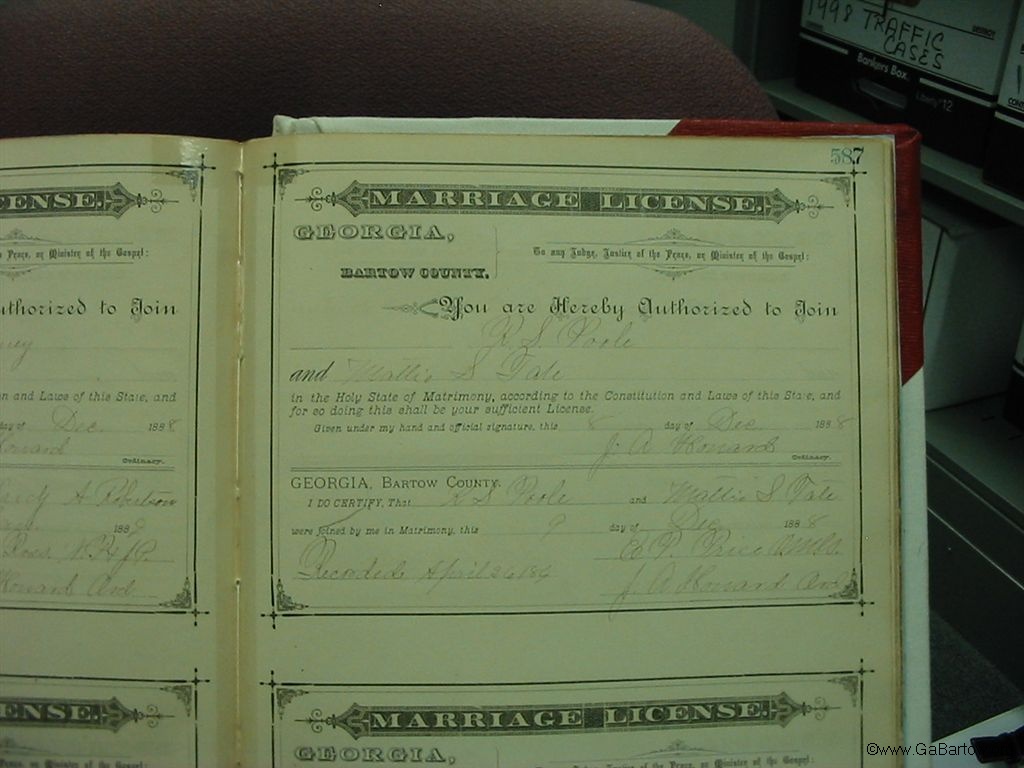 1998 TRAFFIC
CASES
Bankers Box
Liberty 12
587
ENSE.
MARRIAGE LICENSE.
GEORGIA,
BARTOW COUNTY.
To any Judge, Justice of the Peace, or Minister of the Gospel:
Peace, or Minister of the Gospel:
uthorized to Join
You are Hereby Authorized to Join
ney
R S Poole
and Mattie S Tate
n and Laws of this State, and
in the Holy State of Matrimony, according to the Constitution and Laws of this State, and
for so doing this shall be your sufficient License.
day of Dec. 1888
Given under my hand and official signature, this 8 day of Dec. 1888
Howard
J. A Howard
Ordinary.
Ordinary.
A Robertson
GEORGIA, BARTOW COUNTY.
I DO CERTIFY, That R S Poole and Mattie S Tate
1889
were joined by me in Matrimony, this 9 day of Dec 1888
Ross, J.P.
Howard Ord
Recorded April 26 189
J. A Howard Ord
ENSE.
MARRIAGE LICENSE.
GEORGIA,
To any Judge, Justice of the Peace, or Minister of the Gospel:
©www.GaBarto